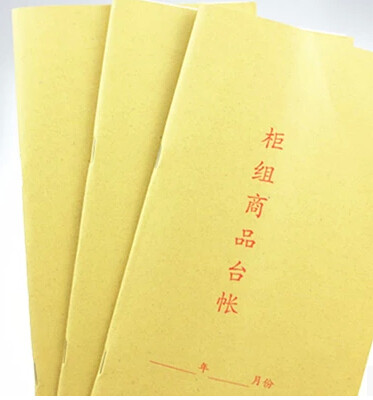 柜组商品台帐
______年______月份